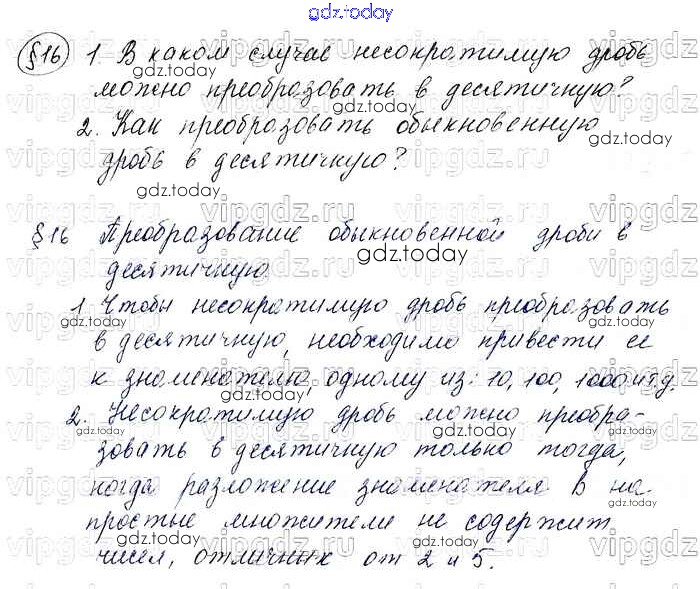 gdz.today
§16 1. В каком случае несократимую дробь
можно преобразовать в десятичную?
2. Как преобразовать обыкновенную
дробь в десятичную?
§16 Преобразование обыкновенной дроби в
десятичную
1 Чтобы несократимую дробь преобразовать
в десятичную, необходимо привести ее
к знаменателю, одному из: 10, 100, 1000 и т.д.
2. Несократимую дробь можно преобра-
зовать в десятичную только тогда,
когда разложение знаменателя в на
простые множители не содержит
чисел, отличных от 2 и 5.